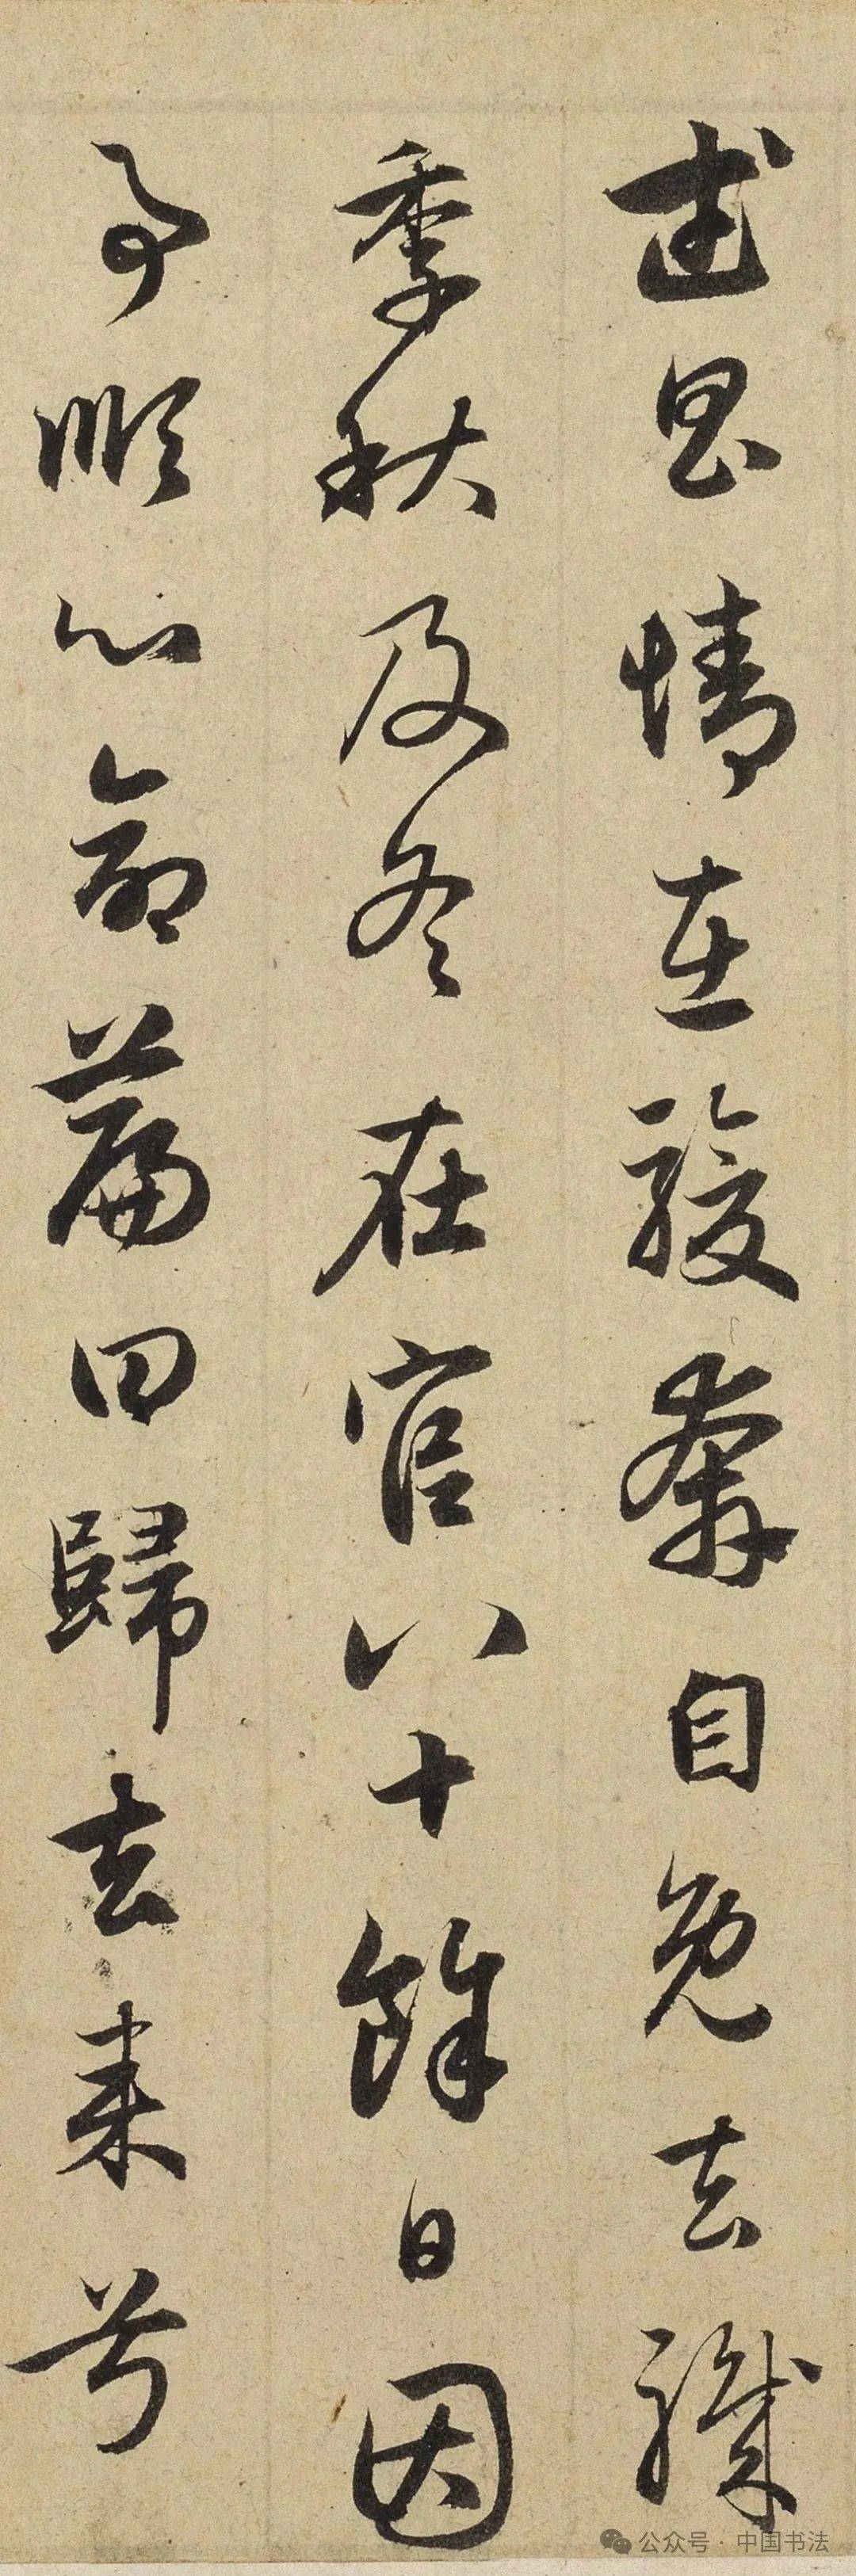 武昌情在駿奔自免去職
季秋及冬在官八十餘日因
事順心命篇曰歸去来兮
公众号·中国书法